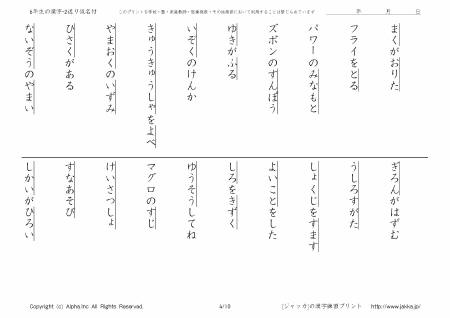 6年生の漢字-2送り仮名付
年 月 日
まくがおりた
フライをとる
パワーのみなもと
ズボンのすんぽう
ゆきがふる
いぞくのけんか
きゅうきゅうしゃをよべ
やまおくのいずみ
ひさくがある
ないぞうのやまい
ぎろんがはずむ
うしろすがた
しょくじをすます
よいことをした
しろをきずく
ゆうそうしてね
マグロのすじ
けいさつしょ
すなあそび
しかいがひろい
Copyright (c) Alpha.Inc All Rights Reserved.
4/10
[ジャッカ]の漢字練習プリント http://www.jakka.jp/